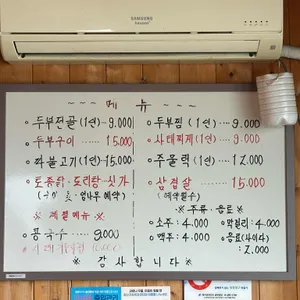 SAMSUNG
~~~ 메뉴 ~~~
○ 두부전골(1인)- 9.000
○ 두부구이 ···· 15.000
○ 짜불고기(1인)-15.000
○ 토종닭·도리탕-싯가
예약)
※ 계절메뉴 ※
○ 콩국수 9.000
○ 두부찜(1인)···9.000
○ 사태찌개(1인)··9.000
○ 주물럭(1인) 12.000
○ 삼겹살 ···· 15.000
(예약필수)
※ 주류·음료 ※
○ 소주: 4.000 ○ 막걸리: 4.000
○ 맥주: 4.000 ○ 음료(사이다)
2.000
※ 감사합니다 ※